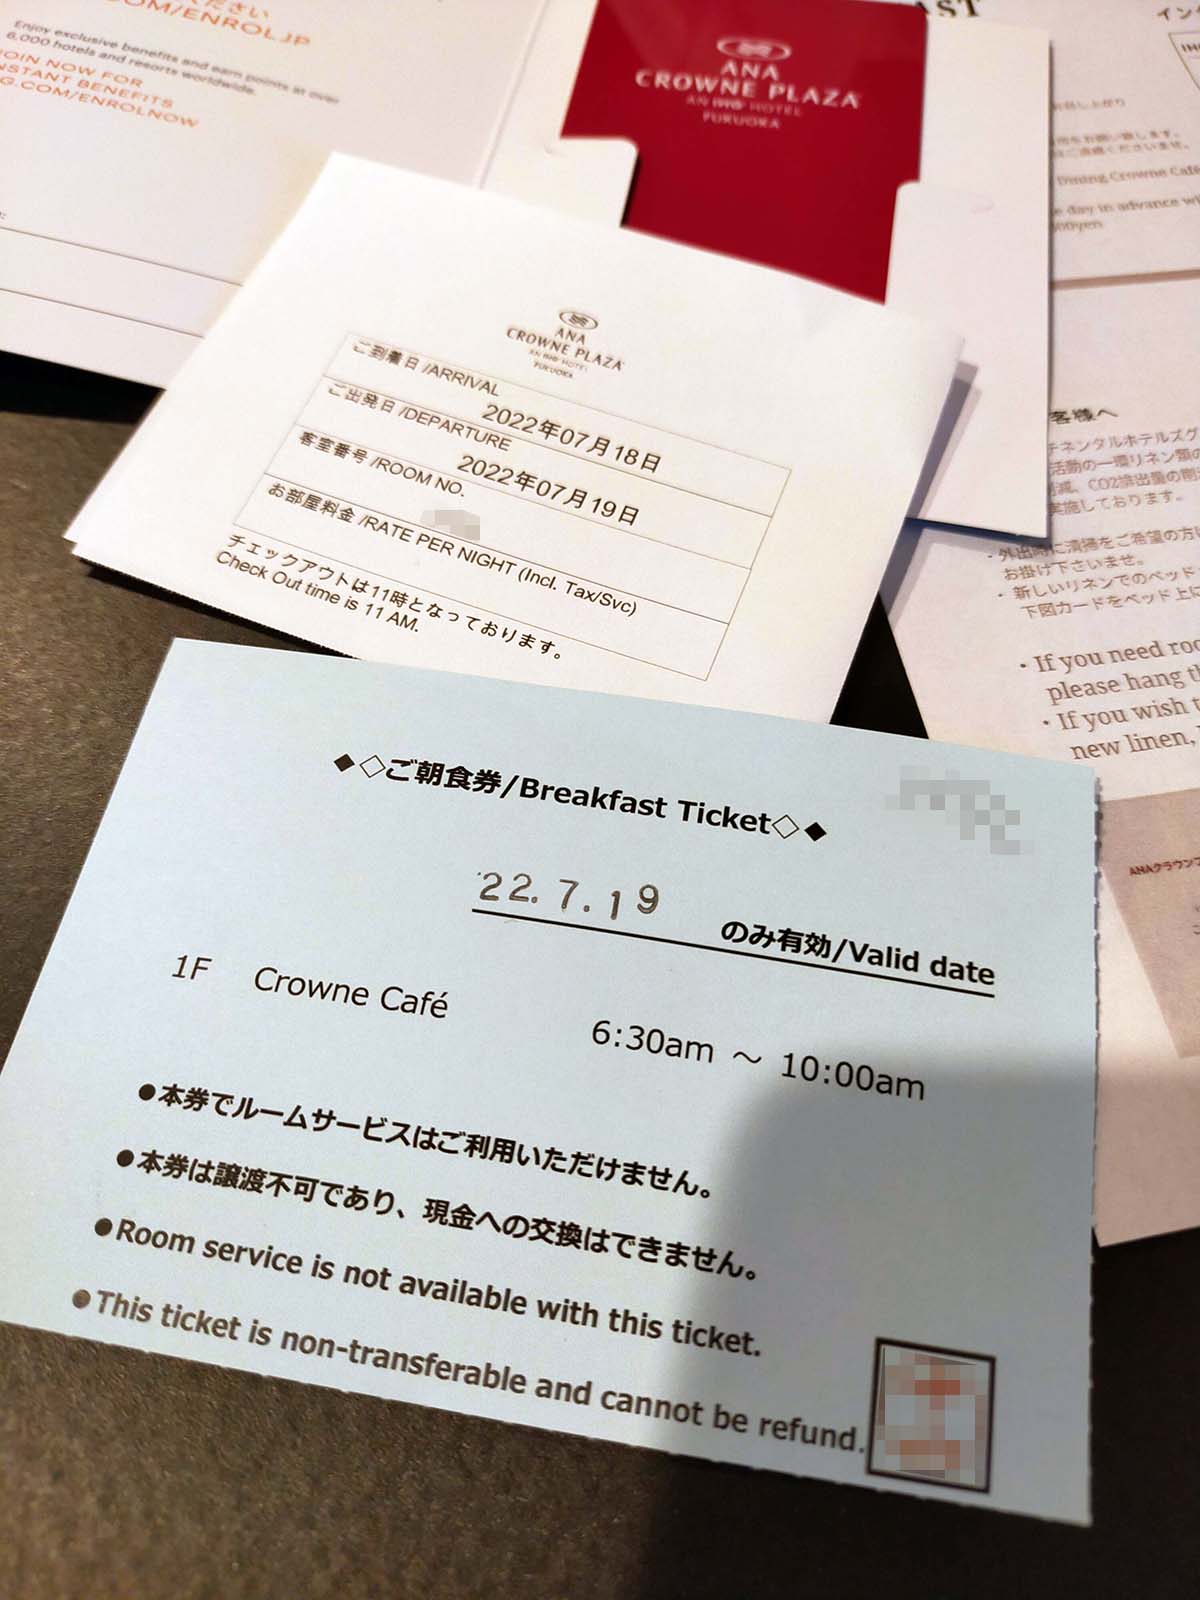 ください
.COM/ENROLJP
Enjoy exclusive benefits and earn points at over
6,000 hotels and resorts worldwide.
JOIN NOW FOR
INSTANT BENEFITS
G.COM/ENROLNOW
ANA
CROWNE PLAZA
AN IHG HOTEL
FUKUOKA
Dining Crowne Café
day in advance
ANA
CROWNE PLAZA
AN IHG HOTEL
FUKUOKA
ご到着日/ARRIVAL
2022年07月18日
ご出発日/DEPARTURE
2022年07月19日
客室番号/ROOM NO.
お部屋料金/RATE PER NIGHT (Incl. Tax/Svc)
チェックアウトは11時となっております。
Check Out time is 11 AM.
客様へ
チネンタルホテルズグ
活動の一環リネン類の
減、CO2排出量の削
実施しております。
・外出時に清掃をご希望の方は
お掛け下さいませ。
・新しいリネンでのベッド
下図カードをベッド上に
・If you need
please hang
・If you wish
new linen,
ANAクラウンプ
◆◇ご朝食券/Breakfast Ticket◇◆
22.7.19 のみ有効/Valid date
1F Crowne Café 6:30am ～ 10:00am
●本券でルームサービスはご利用いただけません。
●本券は譲渡不可であり、現金への交換はできません。
●Room service is not available with this ticket.
●This ticket is non-transferable and cannot be refund.